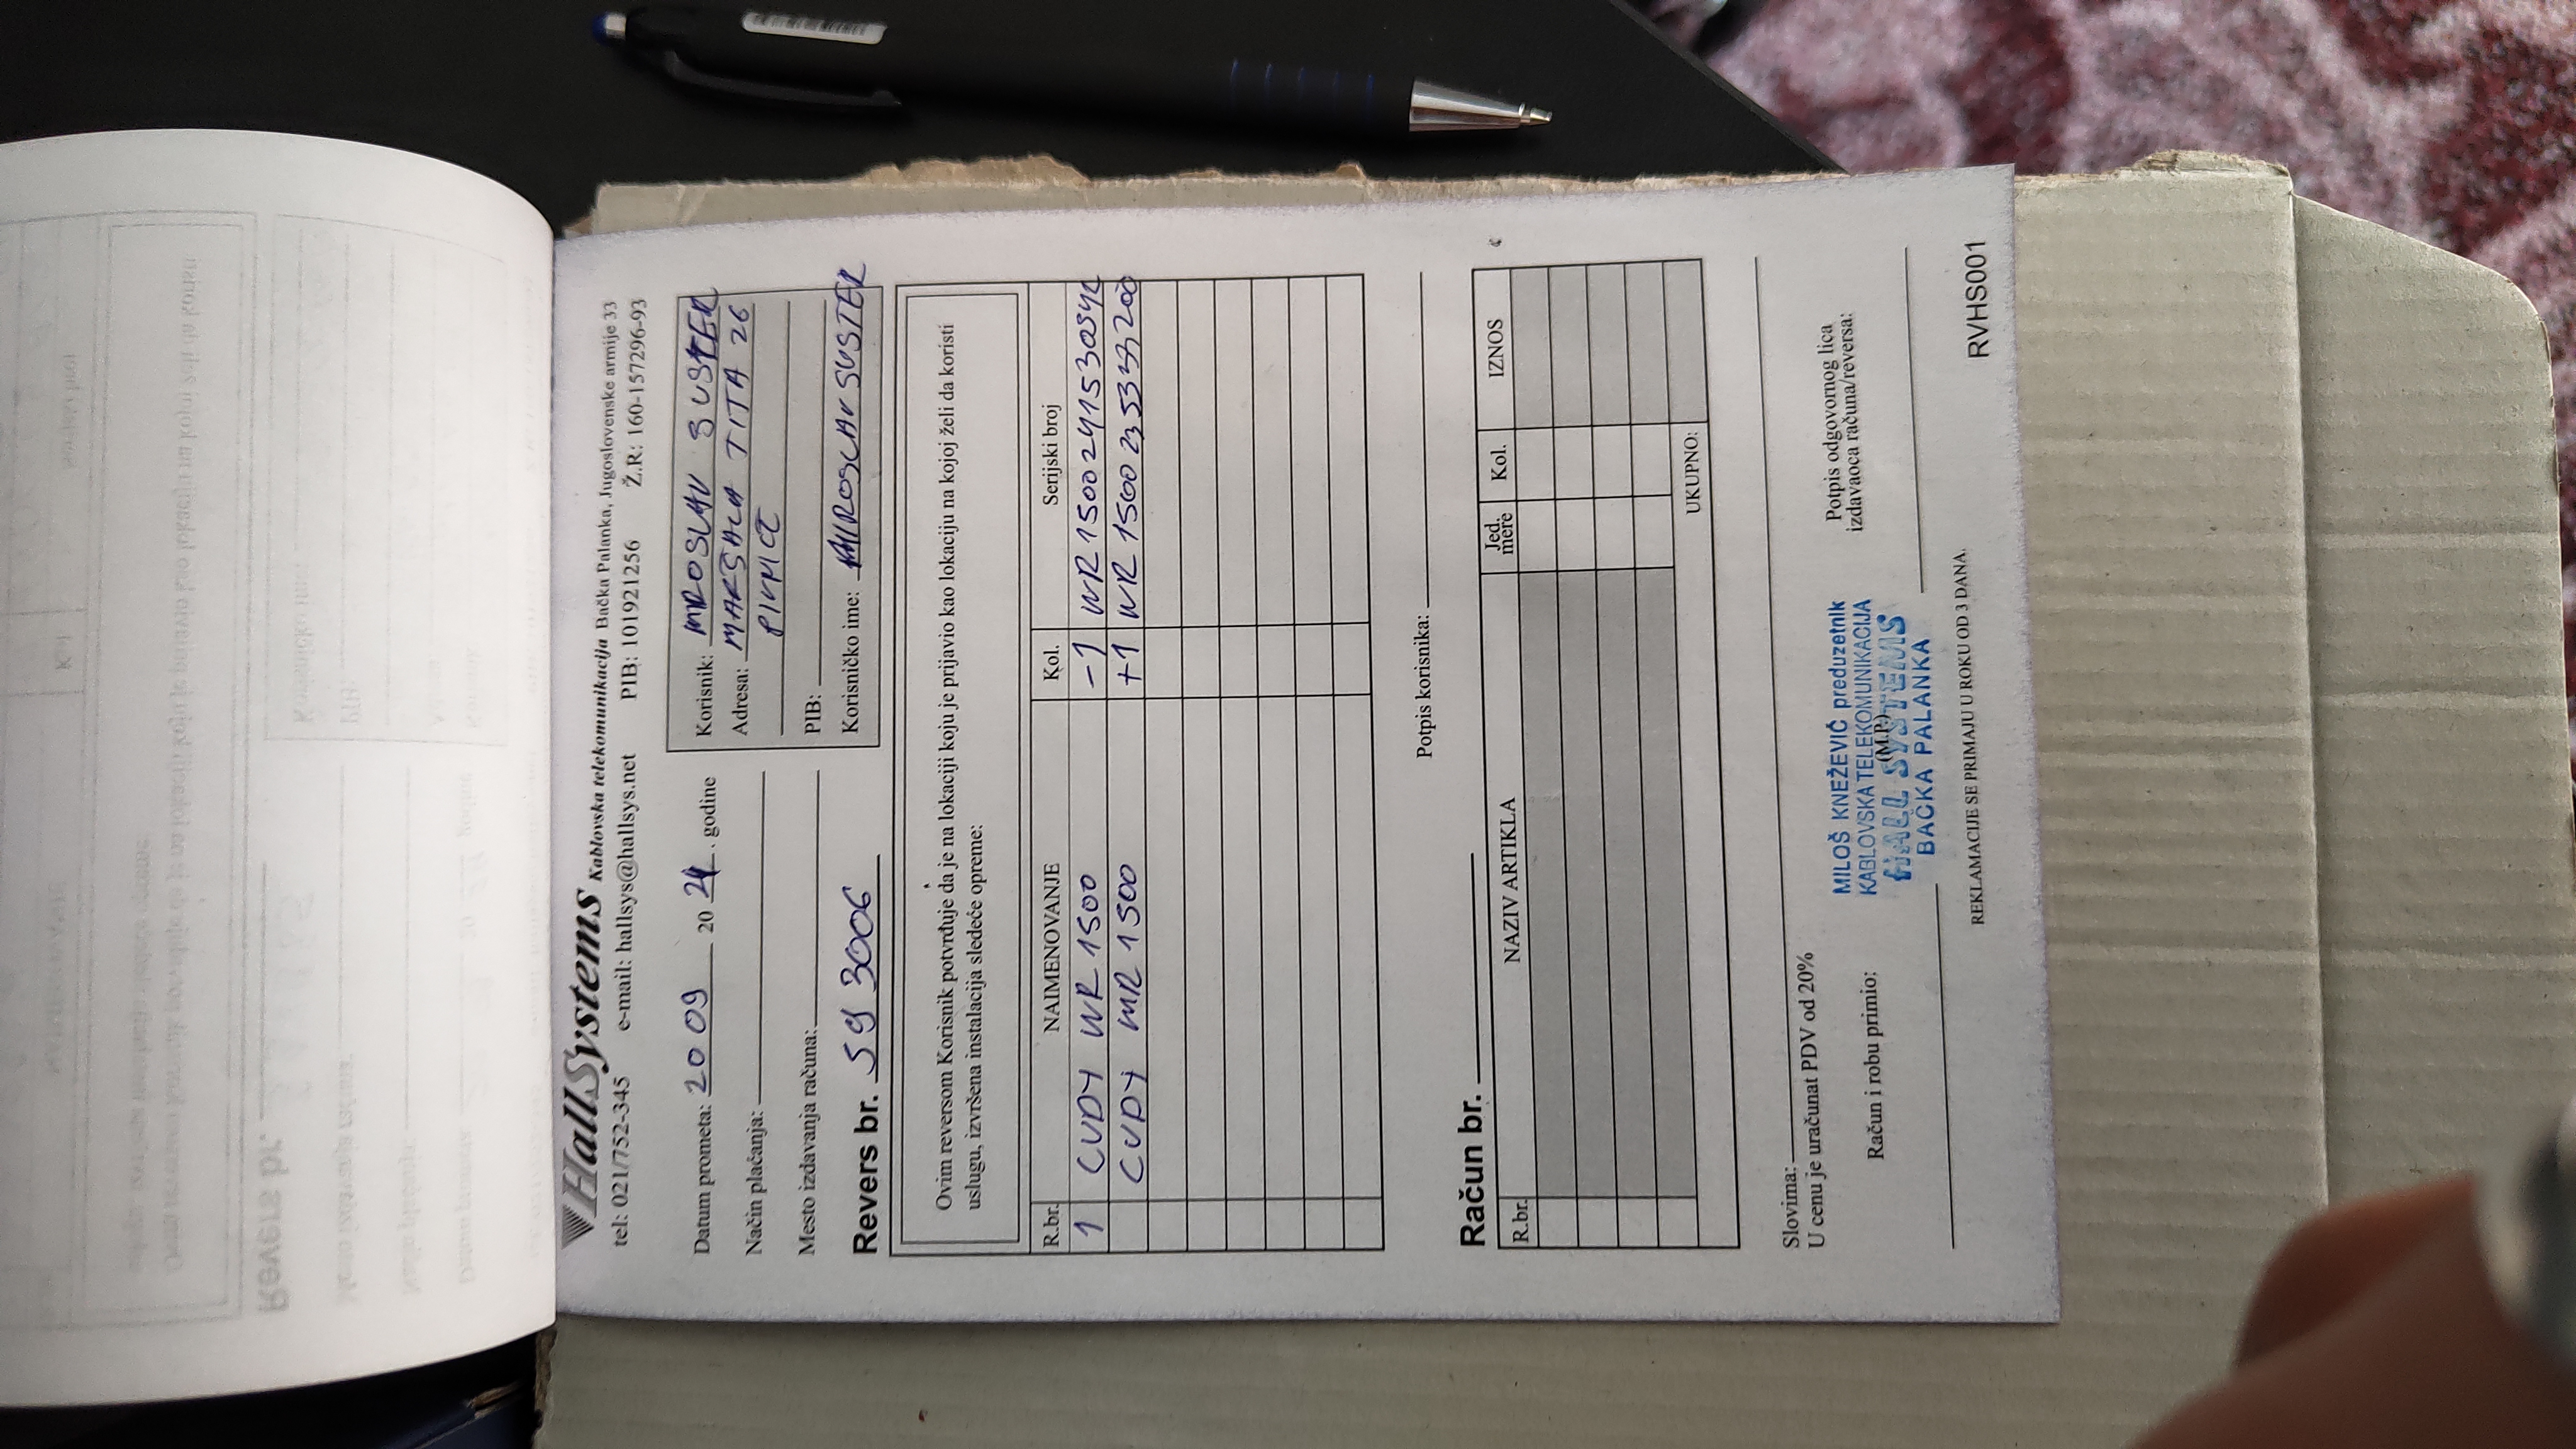 HallSystems Kablovska telekomunikacija Bačka Palanka, Jugoslovenske armije 33
tel: 021/752-345 e-mail: hallsys@hallsys.net PIB: 101921256 Ž.R: 160-157296-93
Datum prometa: 20 09 20 24. godine
Način plaćanja:
Mesto izdavanja računa:
Korisnik: MIROSLAV SUSTER
Adresa: MARSALA TITA 26
PIVNICE
PIB:
Korisničko ime: MIROSLAV SUSTER
Revers br. 593006
Ovim reversom Korisnik potvrđuje da je na lokaciji koju je prijavio kao lokaciju na kojoj želi da koristi
uslugu, izvršena instalacija sledeće opreme:
R.br. NAIMENOVANJE Kol. Serijski broj
1 CUDY WR 1500 -1 WR1500241530542
CUDY WR 1500 +1
Potpis korisnika:
Račun br.
R.br. NAZIV ARTIKLA Jed. mere Kol. IZNOS
UKUPNO:
Slovima:
U cenu je uračunat PDV od 20%
Račun i robu primio:
MILOŠ KNEŽEVIĆ preduzetnik
KABLOVSKA TELEKOMUNIKACIJA
HALL SYSTEMS
(M.P.)
BAČKA PALANKA
Potpis odgovornog lica
izdavaoca računa/reversa:
REKLAMACIJE SE PRIMAJU U ROKU OD 3 DANA.
RVHS001